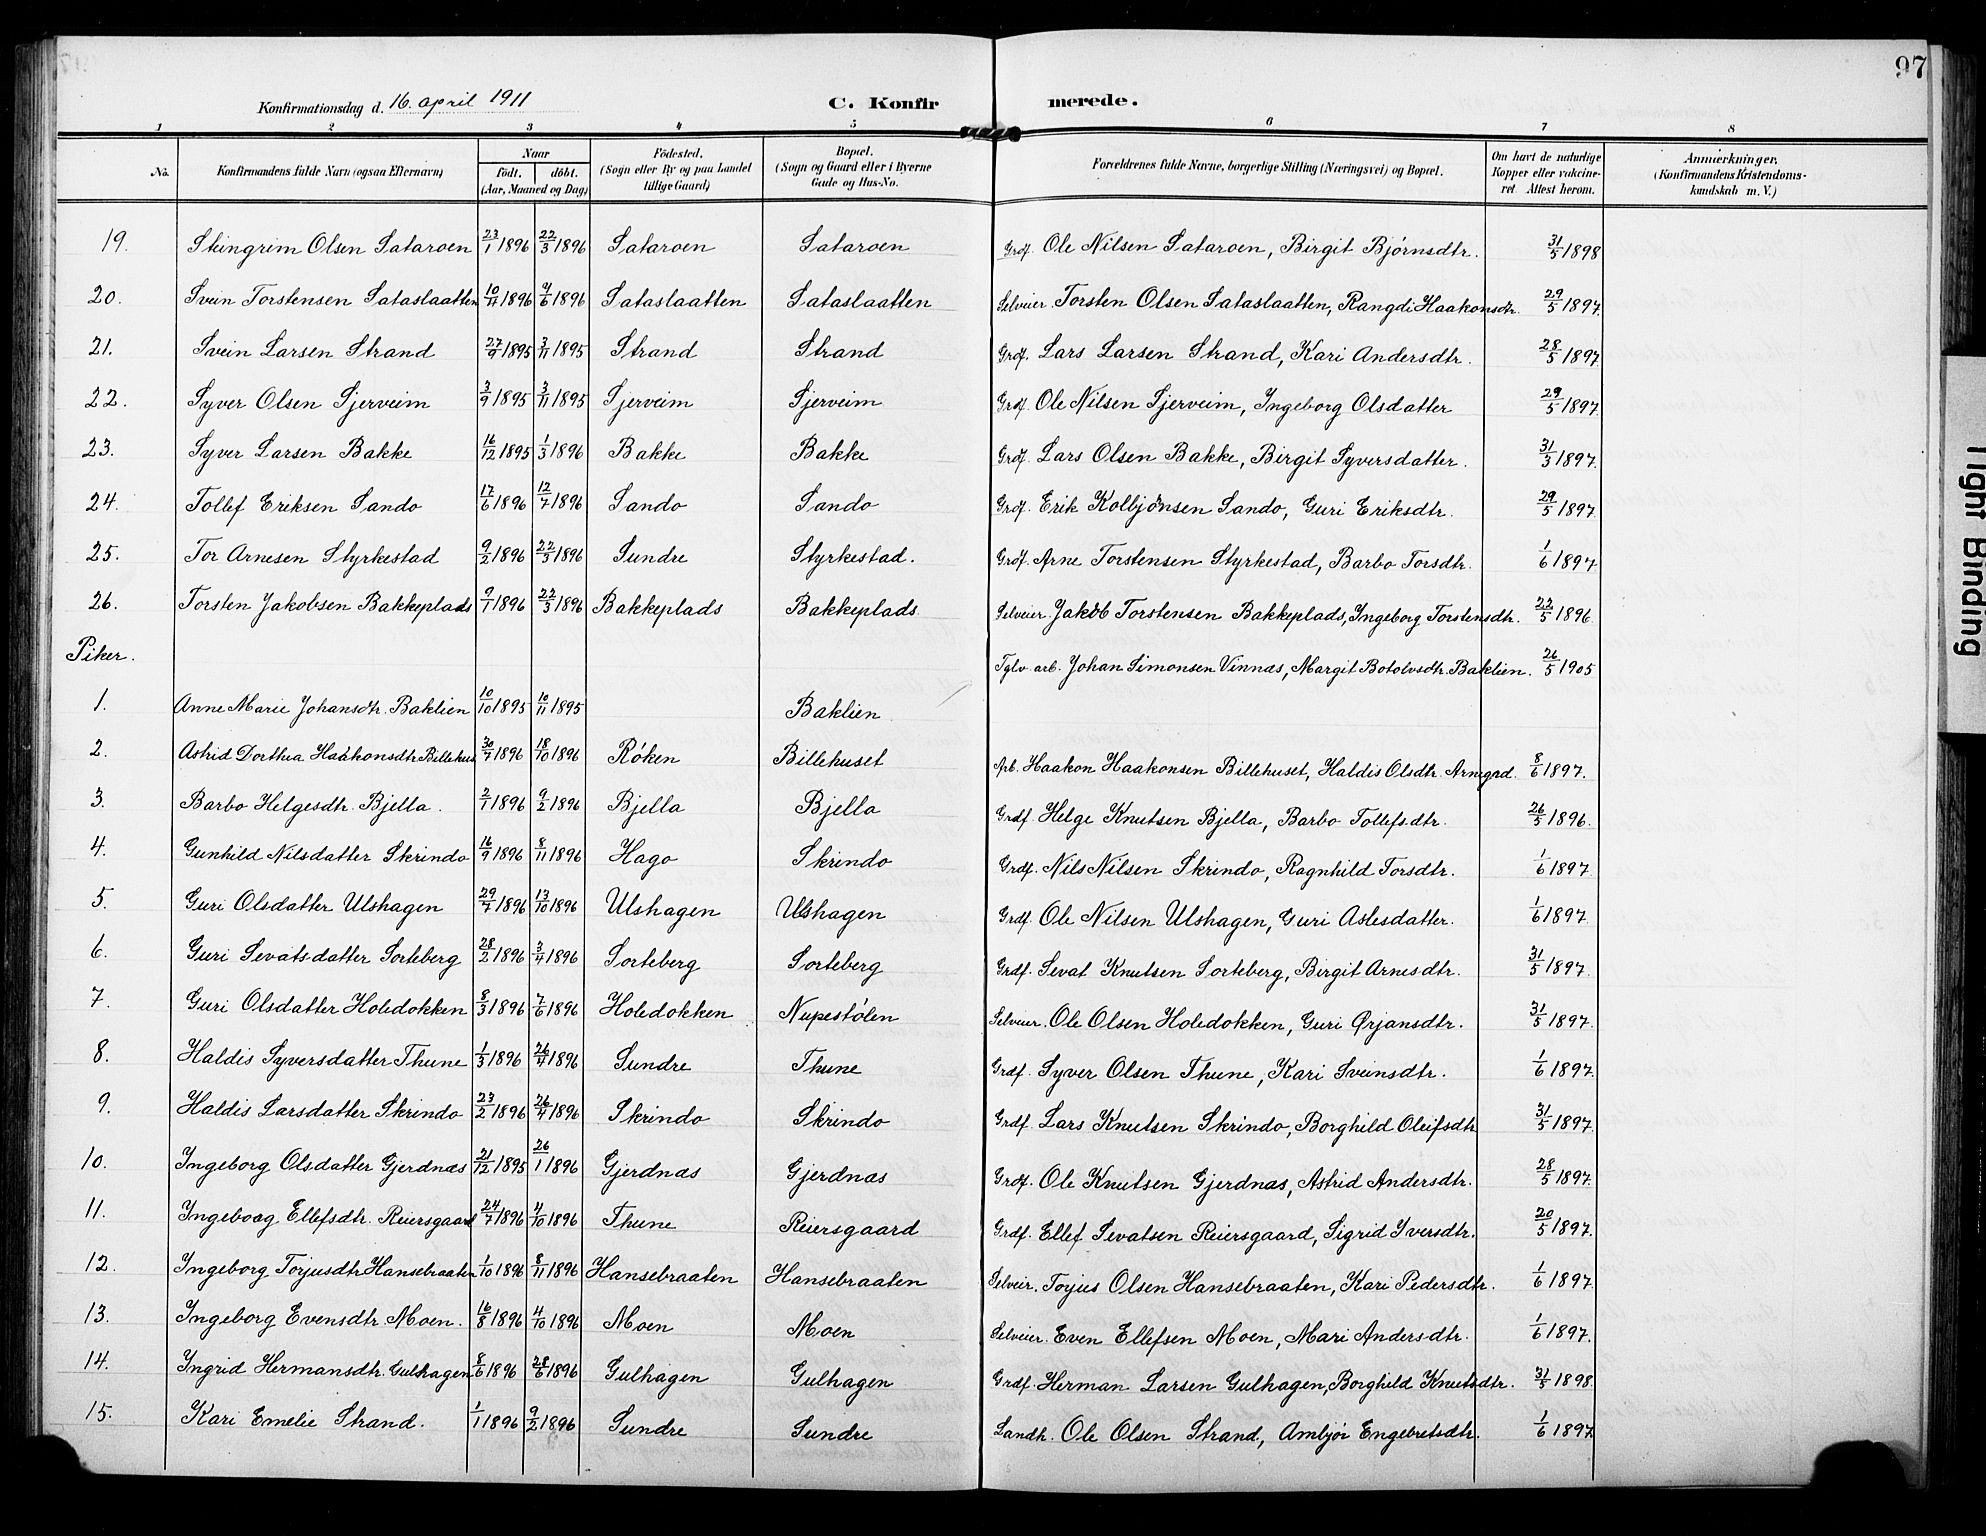 97
Konfirmationsdag d. 16. april 1911 C. Konfirmerede.
1 2 3 4 5 6 7 8
No. Konfirmandens fulde Navn (ogsaa Efternavn) Naar födt. döbt. (Aar, Maaned og Dag) Födested. (Sogn eller By og paa Landet tillige Gaard) Bopæl. (Sogn og Gaard eller i Byerne Gade og Hus-No. Forældrenes fulde Navne, borgerlige Stilling (Næringsvei) og Bopæl. Om havt de naturlige Kopper eller vakcineret. Attest herom. Anmærkninger. (Konfirmandens Kristendomskundskab m. V.)
19. Steingrim Olsen Sataroen 23/1 1896 22/3 1896 Sataroen Sataroen Grdf. Ole Nilsen Sataroen, Birgit Bjørnsdtr. 31/5 1898
20. Svein Torstensen Sataslaatten 10/4 1896 9/6 1896 Sataslaatten Sataslaatten Selveier Torsten Olsen Sataslaatten, Rangdi Haakonsdtr. 29/5 1897.
21. Svein Larsen Strand 27/9 1895 3/11 1895 Strand Strand Grdf. Lars Larsen Strand, Kari Andersdtr. 28/5 1897
22. Syver Olsen Sjerveim 3/9 1895 3/11 1895 Sjerveim Sjerveim Grdf. Ole Nilsen Sjerveim, Ingeborg Olsdatter 29/5 1897.
23. Syver Larsen Bakke 16/12 1895 1/3 1896 Bakke Bakke Grdf. Lars Olsen Bakke, Birgit Syversdatter. 31/3 1897.
24. Tollef Eriksen Sando 17/6 1896 12/7 1896 Sando Sando Grdf. Erik Kolbjønsen Sando, Guri Eriksdtr. 29/5 1897.
25. Tor Arnesen Styrkestad 9/2 1896 22/3 1896 Sundre Styrkestad. Grdf. Arne Torstensen Styrkestad, Barbo Torsdtr. 1/6 1897
26. Torsten Jakobsen Bakkeplads 9/1 1896 22/3 1896 Bakkeplads Bakkeplads Selveier. Jakob Torstensen Bakkeplads, Ingeborg Torstensdtr. 22/5 1896
Piker. Tglv. arb. Johan Simonsen Vinnas, Margit Botolvsdtr. Baklien. 26/5 1905
1. Anne Marie Johansdtr. Baklien 10/10 1895 10/11 1895 Baklien
2. Astrid Dorthea Haakonsdtr Billehus 30/7 1896 18/10 1896 Røken Billehuset Arb. Haakon Haakonsen Billehuset, Haldis Olsdtr. Arnegrd. 8/6 1897.
3. Barbo Helgesdtr. Bjella. 2/1 1896 9/2 1896 Bjella Bjella Grdf. Helge Knutsen Bjella, Barbo Tollefsdtr. 26/5 1896.
4. Gunhild Nilsdatter Skrindo 16/9 1896 8/11 1896 Hago Skrindo Grdf. Nils Nilsen Skrindo, Ragnhild Torsdtr. 1/6 1897
5. Guri Olsdatter Ulshagen 29/7 1896 13/10 1896 Ulshagen Ulshagen Grdf. Ole Nilsen Ulshagen, Guri Aslesdatter. 1/6 1897.
6. Guri Sevatsdatter Sorteberg 28/2 1896 3/4 1896 Sorteberg Sorteberg Grdf. Sevat Knutsen Sorteberg, Birgit Arnesdtr. 31/5 1897.
7. Guri Olsdatter Holedokken 8/3 1896 7/6 1896 Holedokken Nupestølen Selveier. Ole Olsen Holedokken, Guri Ørjansdtr. 31/5 1897.
8. Haldis Syversdatter Thune 1/3 1896 26/4 1896 Sundre Thune Grdf. Syver Olsen Thune, Kari Sveinsdtr. 1/6 1897.
9. Haldis Larsdatter Skrindo 23/2 1896 26/4 1896 Skrindo Skrindo Grdf. Lars Knutsen Skrindo, Borghild Oleifsdtr 31/5 1897.
10. Ingeborg Olsdatter Gjerdnas 21/12 1895 26/1 1896 Gjerdnas Gjerdnas Grdf. Ole Knutsen Gjerdnas, Astrid Andersdtr. 28/5 1897.
11. Ingeborg Ellefsdtr. Reiersgaard 24/7 1896 4/10 1896 Thune Reiersgaard Grdf. Ellef Sevatsen Reiersgaard, Sigrid Iversdtr. 20/5 1897.
12. Ingeborg Torjusdtr Hansebraaten 1/10 1896 8/11 1896 Hansebraaten Hansebraaten Selveir. Torjus Olsen Hansebraaten, Kari Pedersdtr. 1/6 1897.
13. Ingeborg Evensdtr. Moen. 16/8 1896 4/10 1896 Moen Moen Selveier. Even Ellefsen Moen, Mari Andersdtr. 1/6 1897.
14. Ingrid Hermansdtr. Gulhagen 8/6 1896 28/6 1896 Gulhagen Gulhagen Grdf. Herman Larsen Gulhagen, Borghild Knutsdtr. 31/5 1898.
15. Kari Emelie Strand. 1/1 1896 9/2 1896 Sundre Sundre Landh. Ole Olsen Strand, Ambjør Engebretsdtr. 1/6 1897.
Tight Binding